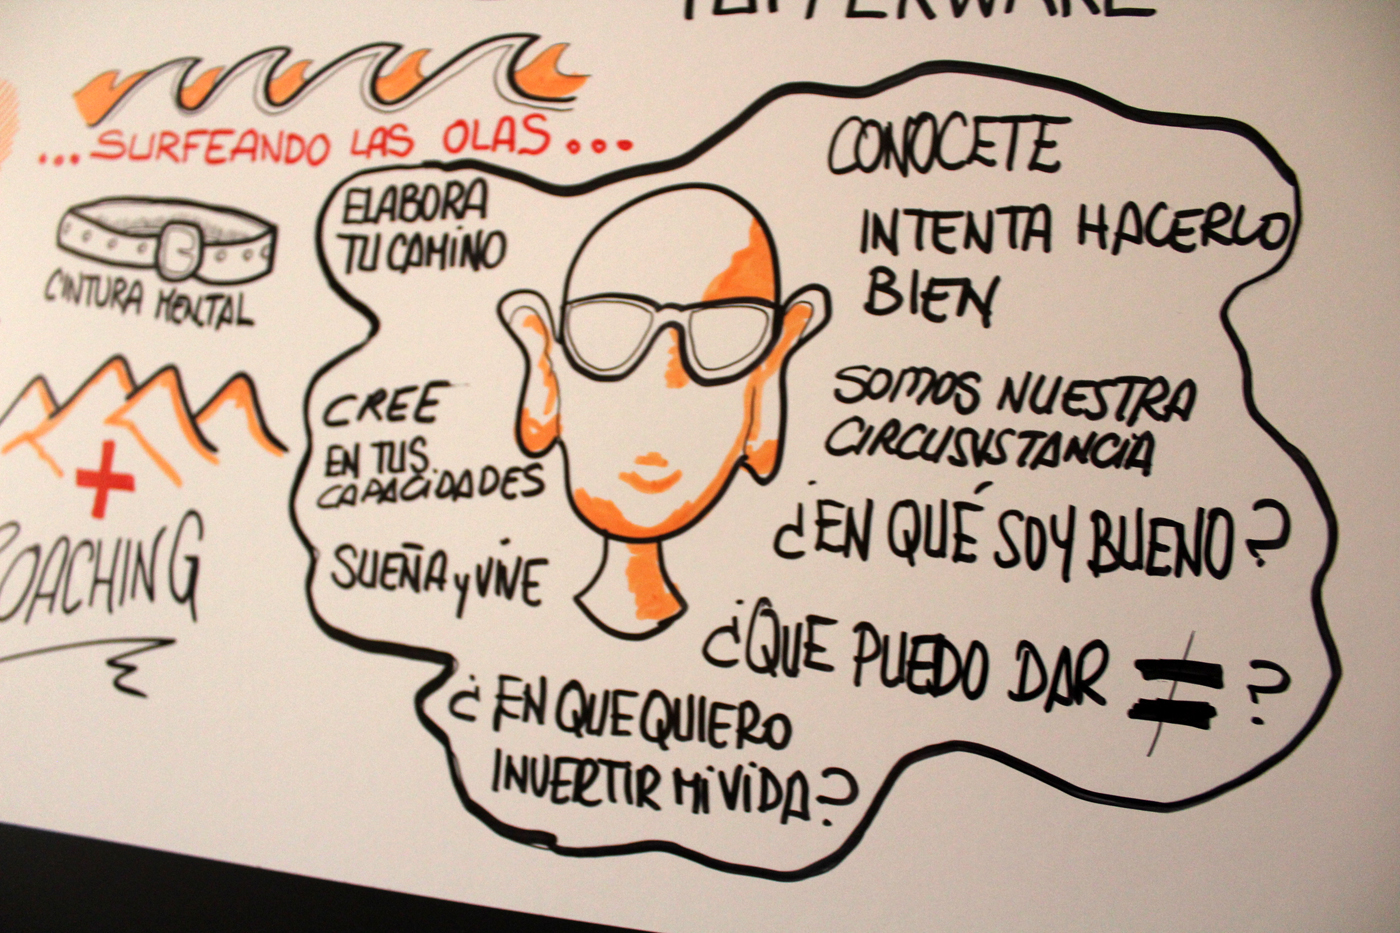 TUPPERWARE
...SURFEANDO LAS OLAS...
CINTURA MENTAL
COACHING
ELABORA
TU CAMINO
CREE
EN TUS
CAPACIDADES
SUEÑA y VIVE
¿EN QUE QUIERO
INVERTIR MI VIDA?
CONOCETE
INTENTA HACERLO
BIEN
SOMOS NUESTRA
CIRCUSISTANCIA
¿EN QUÉ SOY BUENO?
¿QUE PUEDO DAR ≠ ?